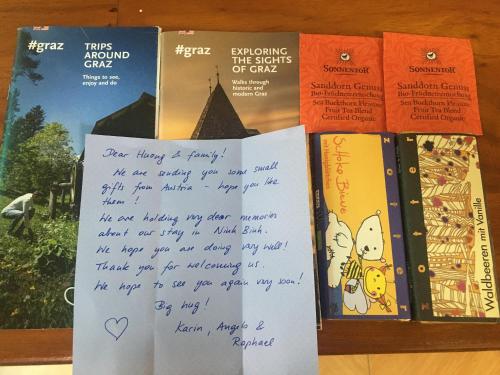 #graz
TRIPS
AROUND
GRAZ
Things to see,
enjoy and do
#graz
EXPLORING
THE SIGHTS
OF GRAZ
Walks through
historic and
modern Graz
SONNENTOR
Sanddorn Genuss
Bio-Früchteteemischung
Sea Buckthorn Pleasure
Fruit Tea Blend
Certified Organic
SONNENTOR
Sanddorn Genuss
Bio-Früchteteemischung
Sea Buckthorn Pleasure
Fruit Tea Blend
Certified Organic
Dear Huong & family!
We are sending you some small
gifts from Austria - hope you like
them!
We are holding very dear memories
about our stay in Ninh Binh.
We hope you are doing very well!
Thank you for welcoming us.
We hope to see you again very soon!
Big hug!
Karin, Angelo &
Raphael
Schoko Biene
zotter
zotter
Waldbeeren mit Vanille